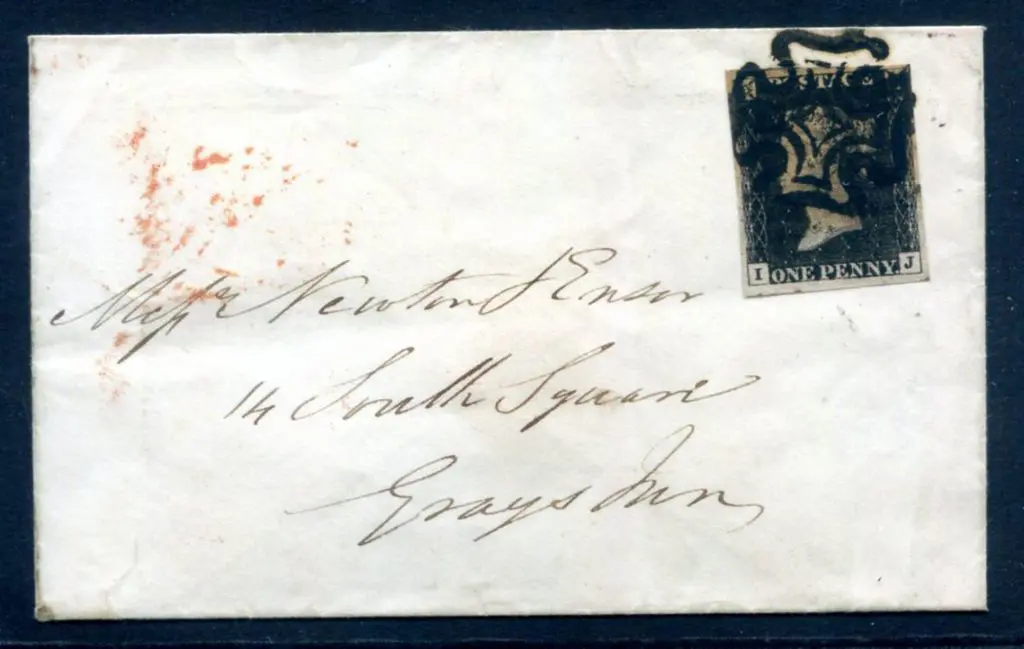 POSTAGE
I ONE PENNY J
Messrs Newton & Ensor
14 South Square
Grays Inn